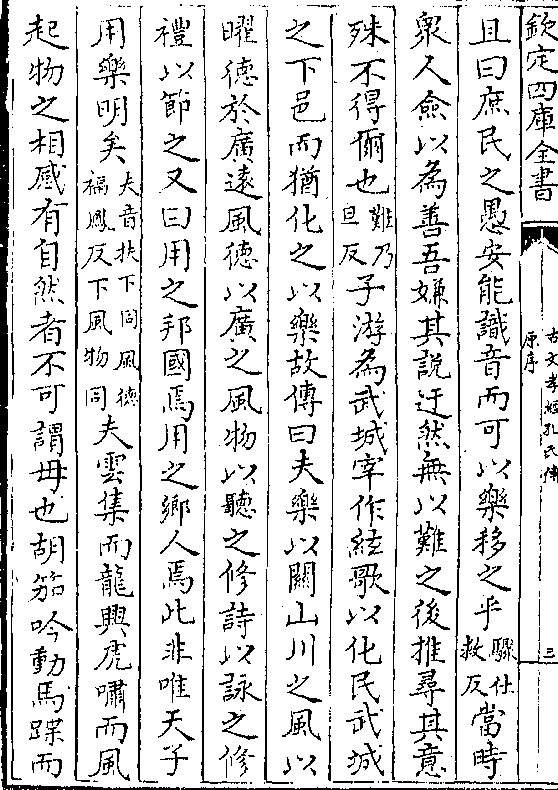 欽定四庫全書
古文孝經孔氏傳
原序
三
且曰庶民之愚安能識音而可以樂移之乎驟仕救反當時
衆人僉以為善吾嫌其說迂然無以難之後推尋其意
殊不得爾也難乃旦反子游為武城宰作絃歌以化民武城
之下邑而猶化之以樂故傳曰夫樂以關山川之風以
曜德於廣遠風德以廣之風物以聽之修詩以詠之修
禮以節之又曰用之邦國焉用之鄉人焉此非唯天子
用樂明矣夫音扶下同風德福鳳反下風物同夫雲集而龍興虎嘯而風
起物之相感有自然者不可謂毋也胡笳吟動馬蹀而